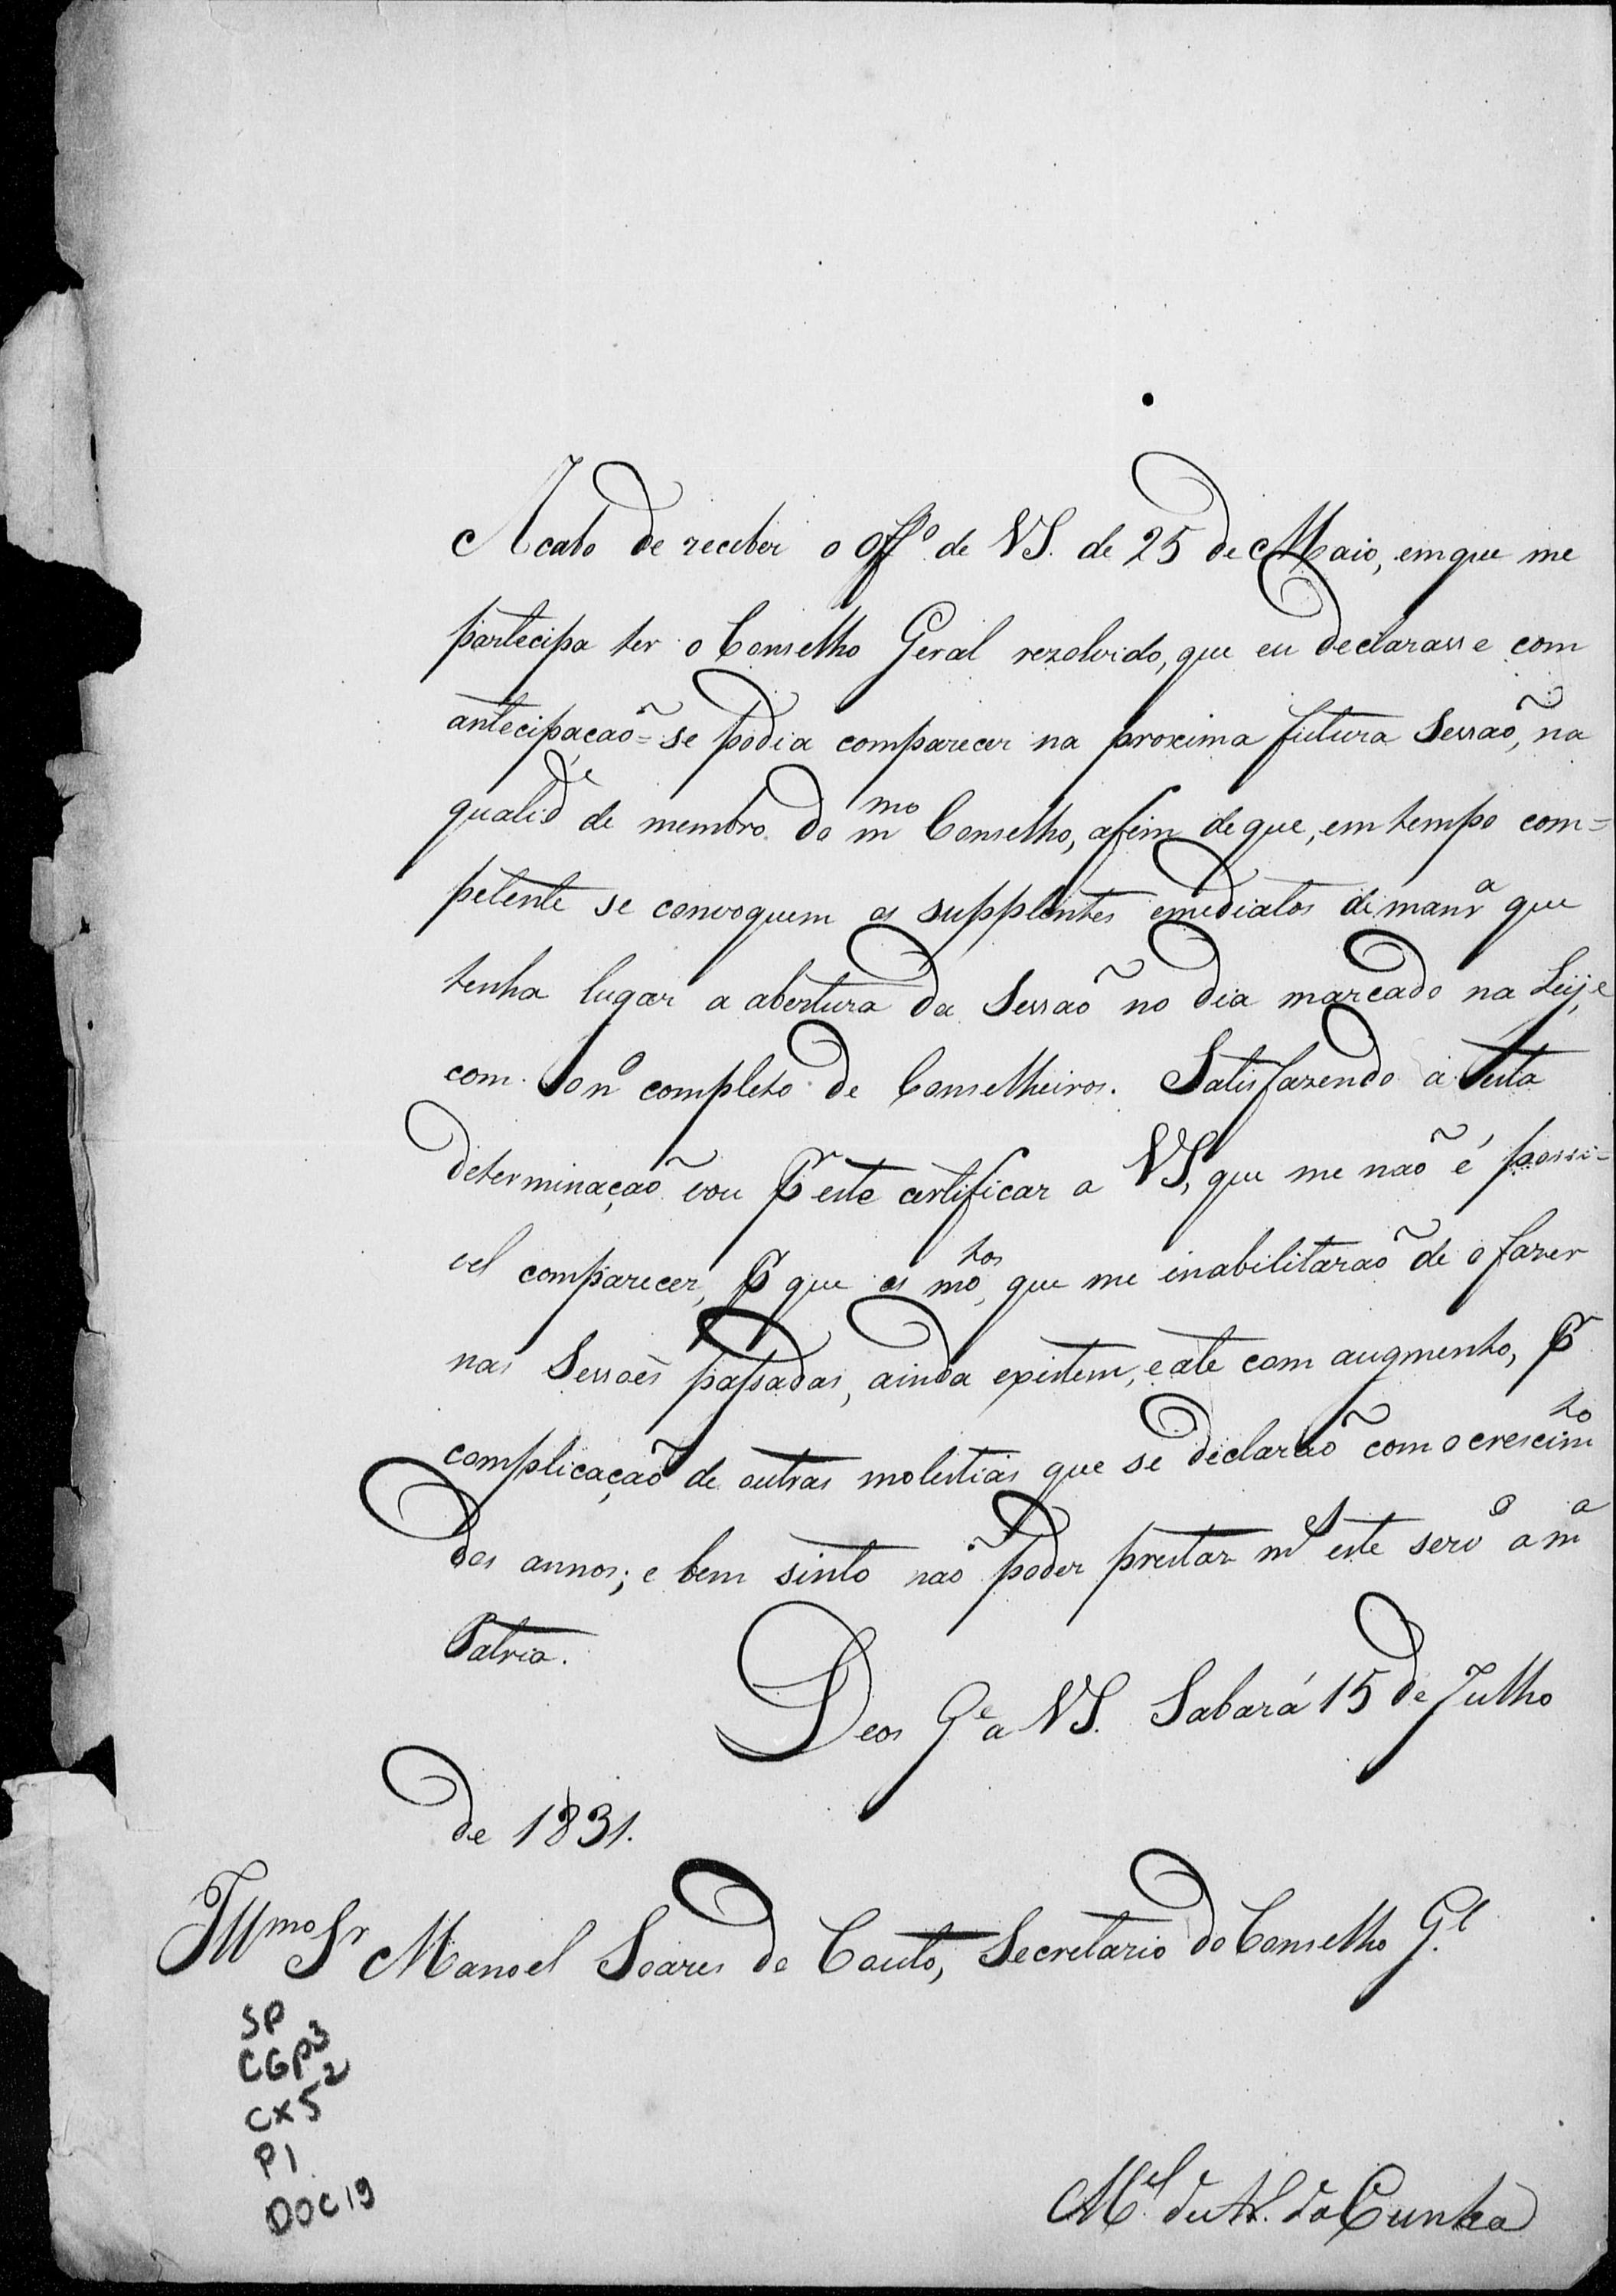 Acabo de receber o Off.º de VS. de 25 de Maio, em que me
partecipa ter o Conselho Geral rezolvido, que eu declarasse com
antecipação = se podia comparecer na proxima futura Sessaõ, na
qualid.e de membro do m.mo Conselho, afim de que, em tempo com=
petente se convoquem os supplentes emediatos de manr.a que
tenha lugar a abertura da Sessaõ no dia marcado na Leij, e
com o nº completo de Conselheiros. Satisfazendo a esta
determinaçaõ vou pr este certificar a VS, que me naõ é possi=
vel comparecer, pr que os mo.tos, que me inabilitaraõ de o fazer
nas Sessoẽs passadas, ainda existem, e até com augmento, pr
complicaçaõ de outras molestias que se declaraõ com o crescim.to
dos annos; e bem sinto naõ poder prestar m.s este serv.º a m.a
Patria.
Deos G.e a VS. Sabará 15 de Julho
de 1831.
Ill.mo Sr Manoel Soares do Couto, Secretario do Conselho G.l
SP
CGP3
CX52
P1
DOC19
M.el da Cunha